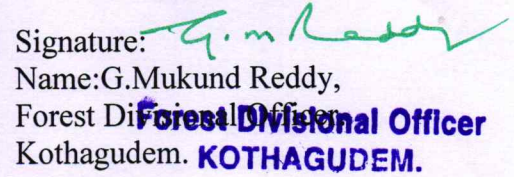 Signature: G.m Reddy
Name:G.Mukund Reddy,
Forest Divisional Officer,
Forest Divisional Officer
Kothagudem. KOTHAGUDEM.